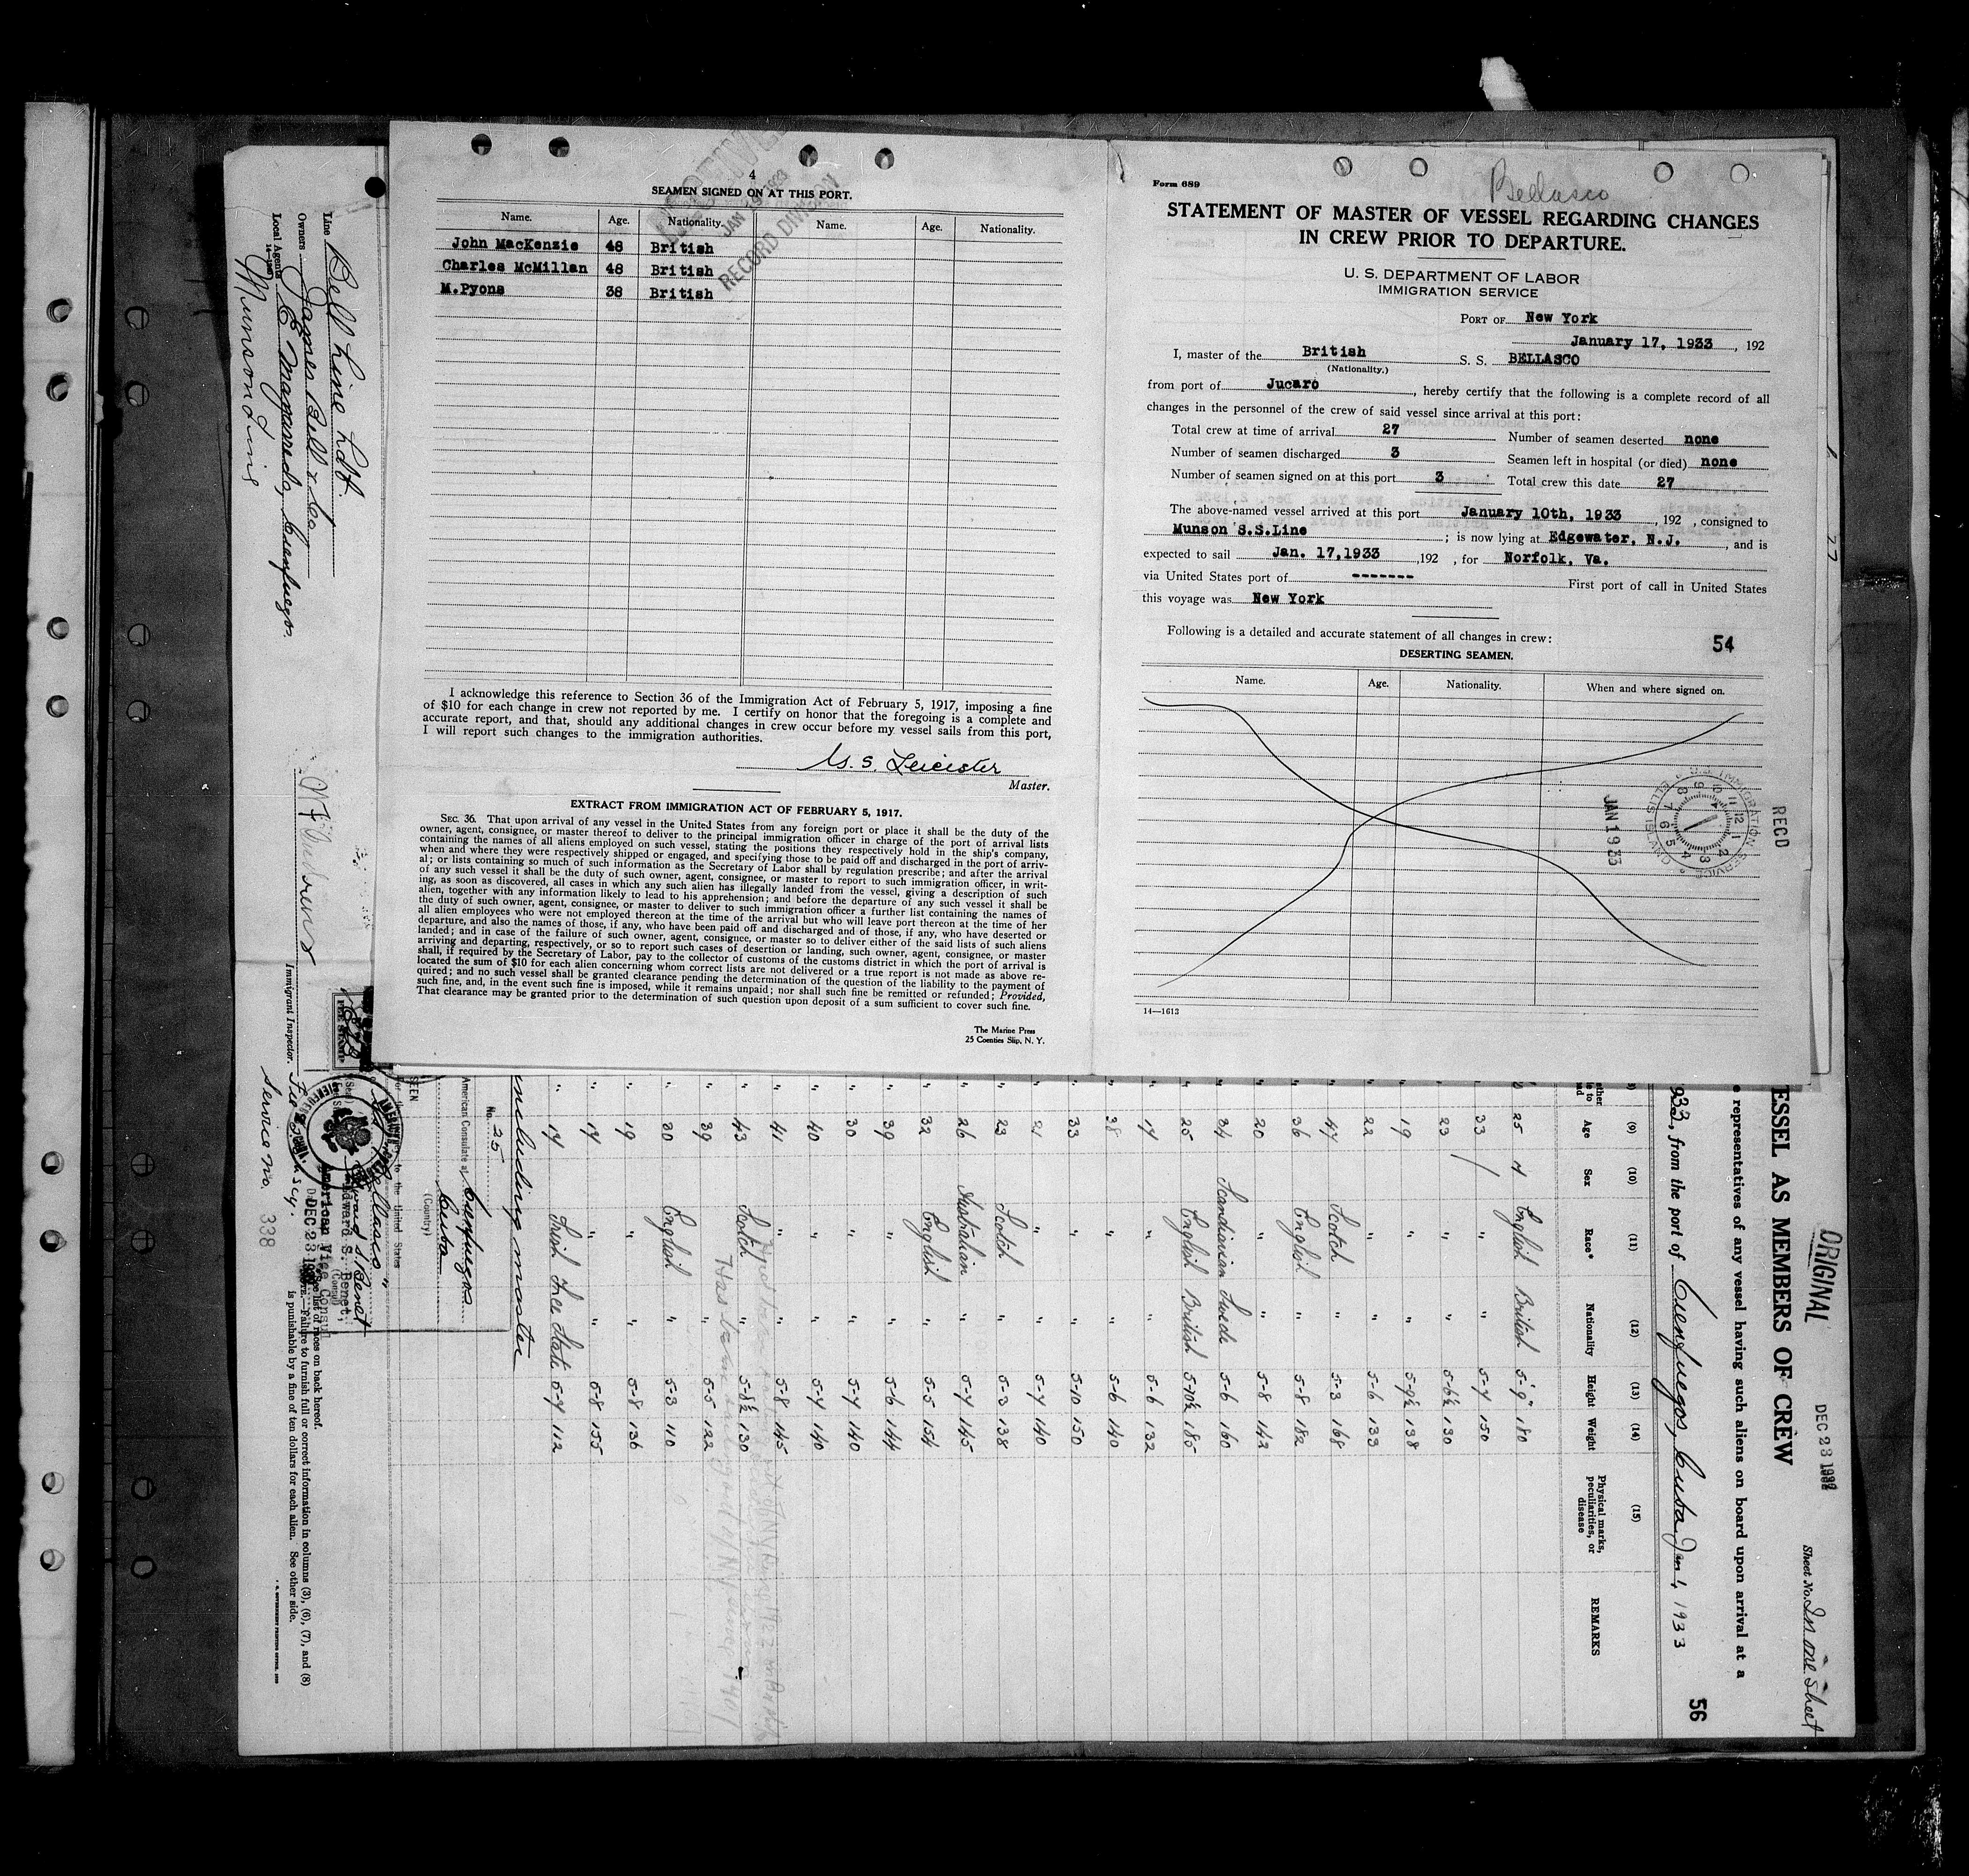 4
SEAMEN SIGNED ON AT THIS PORT.
Name. Age. Nationality. Name. Age. Nationality.
John MacKenzie 48 British
Charles McMillan 48 British
M.Pyons 38 British
RECEIVED
JAN 19 1933
RECORD DIVISION
I acknowledge this reference to Section 36 of the Immigration Act of February 5, 1917, imposing a fine
of $10 for each change in crew not reported by me. I certify on honor that the foregoing is a complete and
accurate report, and that, should any additional changes in crew occur before my vessel sails from this port,
I will report such changes to the immigration authorities.
W. S. Leicester
Master.
EXTRACT FROM IMMIGRATION ACT OF FEBRUARY 5, 1917.
SEC. 36. That upon arrival of any vessel in the United States from any foreign port or place it shall be the duty of the
owner, agent, consignee, or master thereof to deliver to the principal immigration officer in charge of the port of arrival lists
containing the names of all aliens employed on such vessel, stating the positions they respectively hold in the ship's company,
when and where they were respectively shipped or engaged, and specifying those to be paid off and discharged in the port of arriv-
al; or lists containing so much of such information as the Secretary of Labor shall by regulation prescribe; and after the arrival
of any such vessel it shall be the duty of such owner, agent, consignee, or master to report to such immigration officer, in writ-
ing, as soon as discovered, all cases in which any such alien has illegally landed from the vessel, giving a description of such
alien, together with any information likely to lead to his apprehension; and before the departure of any such vessel it shall be
the duty of such owner, agent, consignee, or master to deliver to such immigration officer a further list containing the names of
all alien employees who were not employed thereon at the time of the arrival but who will leave port thereon at the time of her
departure, and also the names of those, if any, who have been paid off and discharged and of those, if any, who have deserted or
landed; and in case of the failure of such owner, agent, consignee, or master so to deliver either of the said lists of such aliens
arriving and departing, respectively, or so to report such cases of desertion or landing, such owner, agent, consignee, or master
shall, if required by the Secretary of Labor, pay to the collector of customs of the customs district in which the port of arrival is
located the sum of $10 for each alien concerning whom correct lists are not delivered or a true report is not made as above re-
quired; and no such vessel shall be granted clearance pending the determination of the question of the liability to the payment of
such fine, and, in the event such fine is imposed, while it remains unpaid; nor shall such fine be remitted or refunded; Provided,
That clearance may be granted prior to the determination of such question upon deposit of a sum sufficient to cover such fine.
The Marine Press
25 Coenties Slip, N. Y.
Form 689
Bellasco
STATEMENT OF MASTER OF VESSEL REGARDING CHANGES
IN CREW PRIOR TO DEPARTURE.
U. S. DEPARTMENT OF LABOR
IMMIGRATION SERVICE
PORT OF New York
January 17, 1933, 192
I, master of the British S. S. BELLASCO
(Nationality.)
from port of Jucaro, hereby certify that the following is a complete record of all
changes in the personnel of the crew of said vessel since arrival at this port:
Total crew at time of arrival 27 Number of seamen deserted none
Number of seamen discharged 3 Seamen left in hospital (or died) none
Number of seamen signed on at this port 3 Total crew this date 27
The above-named vessel arrived at this port January 10th, 1933, 192 , consigned to
Munson S.S.Line; is now lying at Edgewater, N.J., and is
expected to sail Jan. 17,1933 ,192 , for Norfolk, Va.
via United States port of ------- First port of call in United States
this voyage was New York
Following is a detailed and accurate statement of all changes in crew:
54
DESERTING SEAMEN.
Name. Age. Nationality. When and where signed on.
RECD
U.S. IMMIGRATION SERVICE
ELLIS IS.
JAN 19 33
14—1613
ORIGINAL
DEC 23 1932
Sheet No. In one Sheet
ESSEL AS MEMBERS OF CREW
e representatives of any vessel having such aliens on board upon arrival at a
933, from the port of Cienfuegos, Cuba Jan 1, 1933
56
(9) (10) (11) (12) (13) (14) (15)
Age Sex Race* Nationality Height Weight Physical marks, peculiarities, or disease REMARKS
25 M English British 5'9" 180
33 / " " 5-7 150
23 " " 5-6½ 130
19 " " 5-9½ 138
22 " " 5-6 133
47 Scotch " 5-3 168
36 English " 5-8 182
20 " " 5-8 142
34 Scandinavian Swede 5-6 160
25 English British 5-10½ 185
17 " 5-6 132
38 " " 5-6 140
33 " " 5-10 150
21 " " 5-7 140
23 Scotch " 5-3 138
26 Australian " 5-7 145
32 English " 5-5 154
39 " " 5-6 144
30 " " 5-7 140
40 " " 5-7 140
41 " " 5-8 145
43 Scotch " 5-8½ 130
39 " 5-5 122
30 English " 5-3 110
19 " 5-8 136
17 " " 5-8 155
17 Irish Free State 5-7 112
including master
No. 25
American Consulate at Cienfuegos
Cuba
(Country)
SEEN
For the to the United States
Bellasco
Edward S. Benet
Edward S. Benet,
American Vice Consul
(Consul)
DEC 23 1932
FEE STAMP
Service no. 338
See list of races on back hereof.
NOTE.—Failure to furnish full or correct information in columns (3), (6), (7), and (8)
is punishable by a fine of ten dollars for each alien. See other side.
Immigrant Inspector.
Line Bell Line Ldt.
Owners James Bell & Co
Local Agents E Mazarredo, Cienfuegos.
14—1240
Munson Line